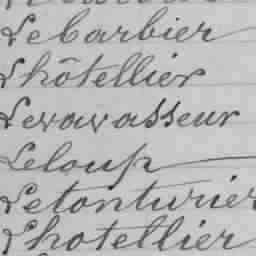 Lebarbier
Lhôtellier
Levavasseur
Leloup
Letonturier
Lhotellier